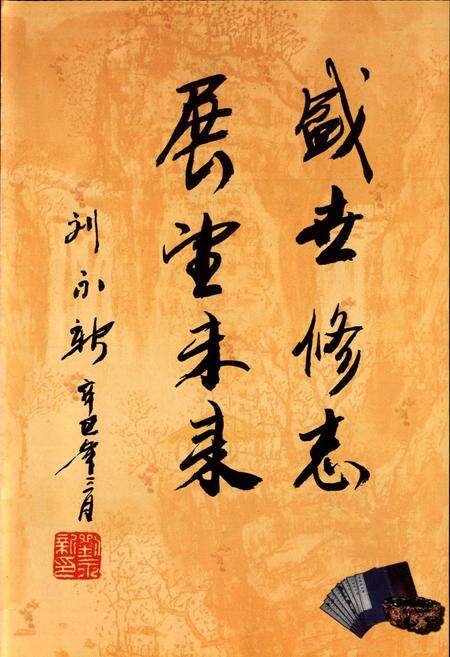 盛世修志
展望未来
刘永新 辛巳年三月
劉永新印